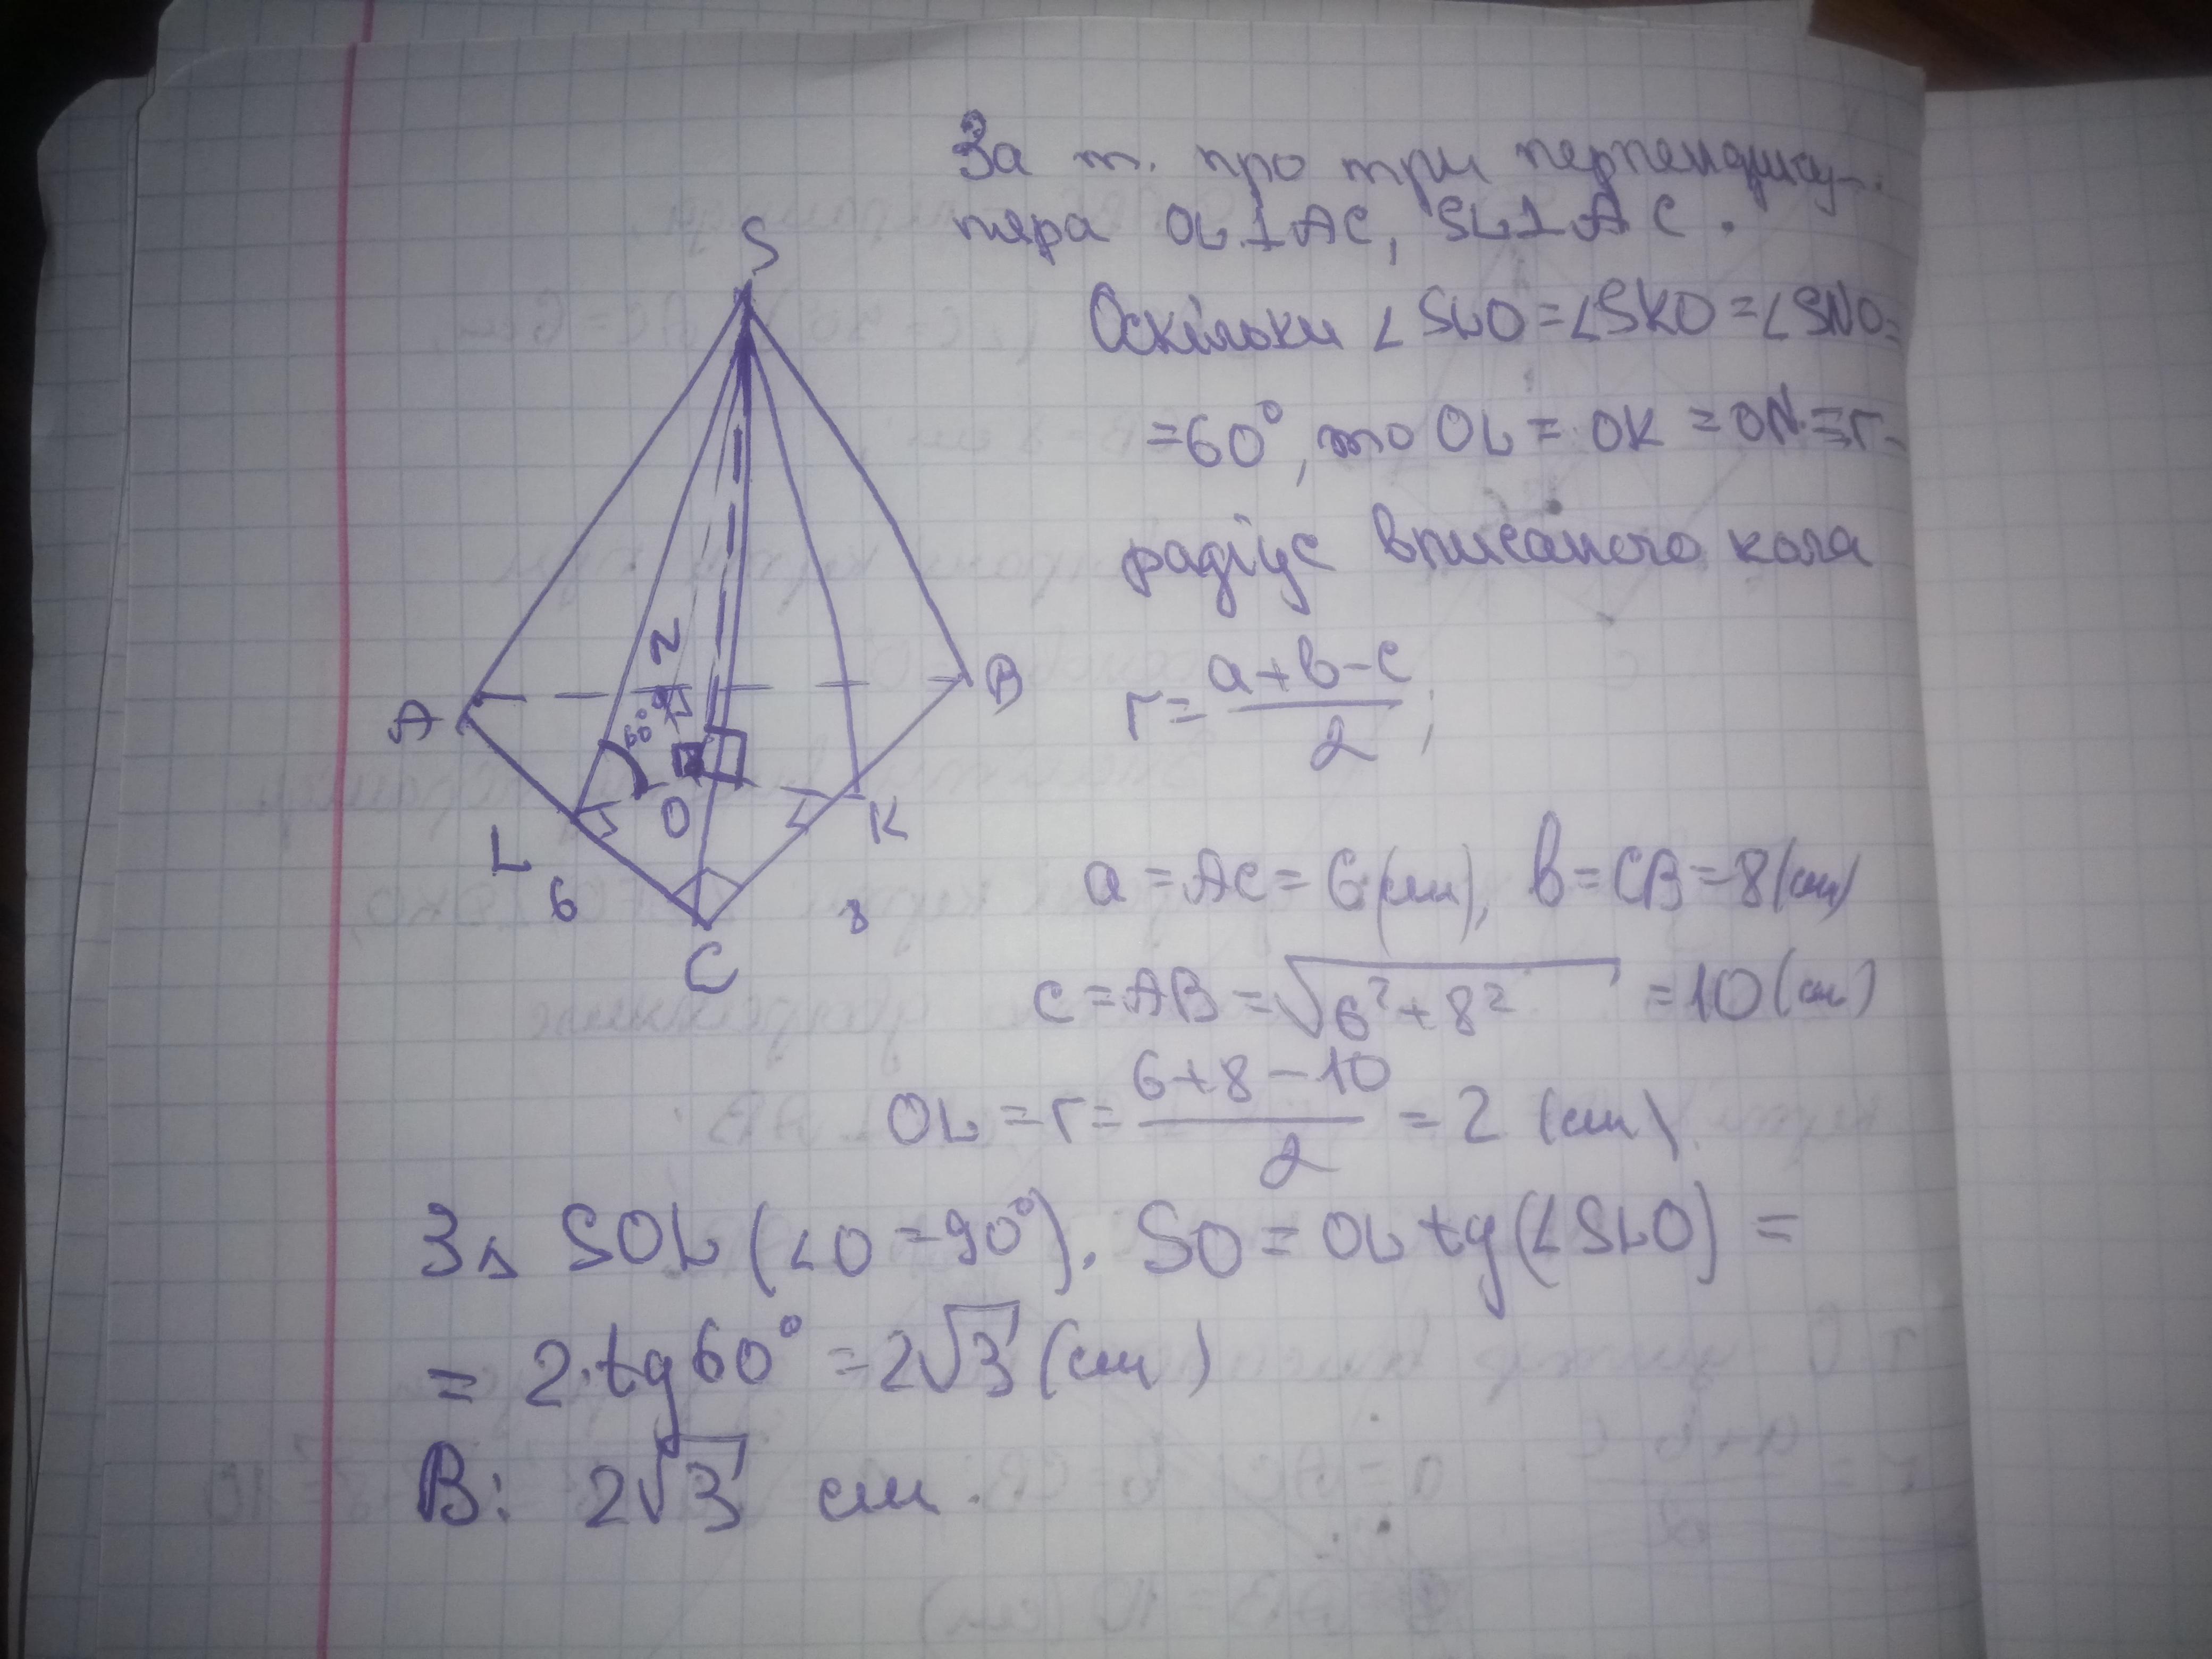 За т. про три перпендику-
ляра OL⊥AC, SL⊥AC.
Оскільки ∠SLO=∠SKO=∠SNO=
=60°, то OL = OK = ON = r -
радіус вписаного кола
r = (a+b-c)/2;
a = AC = 6 (см), b = CB = 8 (см)
c = AB = √(6²+8²) = 10 (см)
OL = r = (6+8-10)/2 = 2 (см)
З △ SOL (∠O = 90°). SO = OL tg(∠SLO) =
= 2·tg60° = 2√3 (см)
В: 2√3 см
S
N
A
B
60°
O
K
L
6
8
C